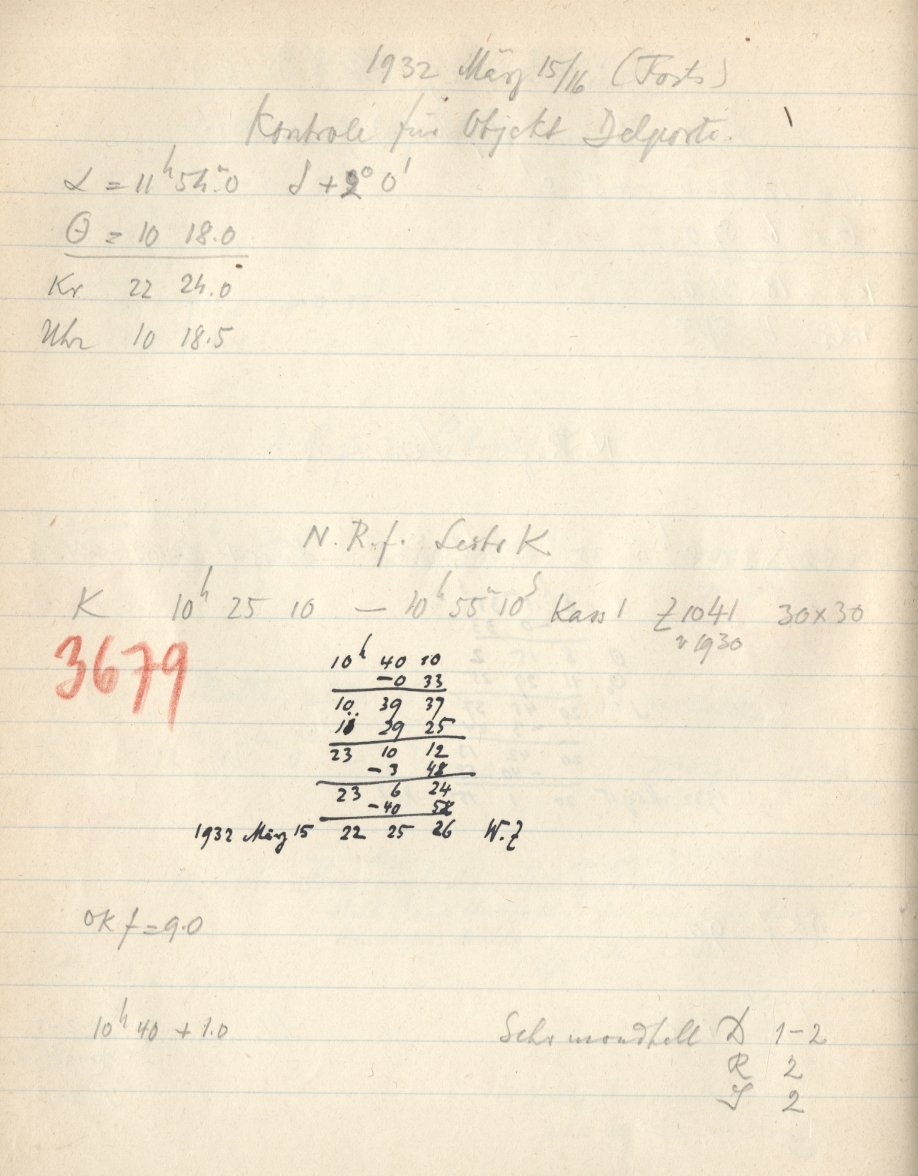 1932 März 15/16 (Forts)
Kontrole für Objekt Delporte.
α = 11ʰ 54ᵐ.0 δ + 2° 0'
Θ = 10 18.0
Kr 22 24.0
Uhr 10 18.5
N. R. f.
K 10ʰ 25 10 — 10ʰ 55ᵐ 10ˢ Kass 1 Z 1041 30x30
v 1930
3679
10ʰ 40 10
-0 33
10 39 37
29 25
23 10 12
-3 48
23 6 24
-40 58
1932 März 15 22 25 26 W.Z
OK f = 9.0
10ʰ 40 + 1.0
Sehr mondhell D 1-2
R 2
J 2